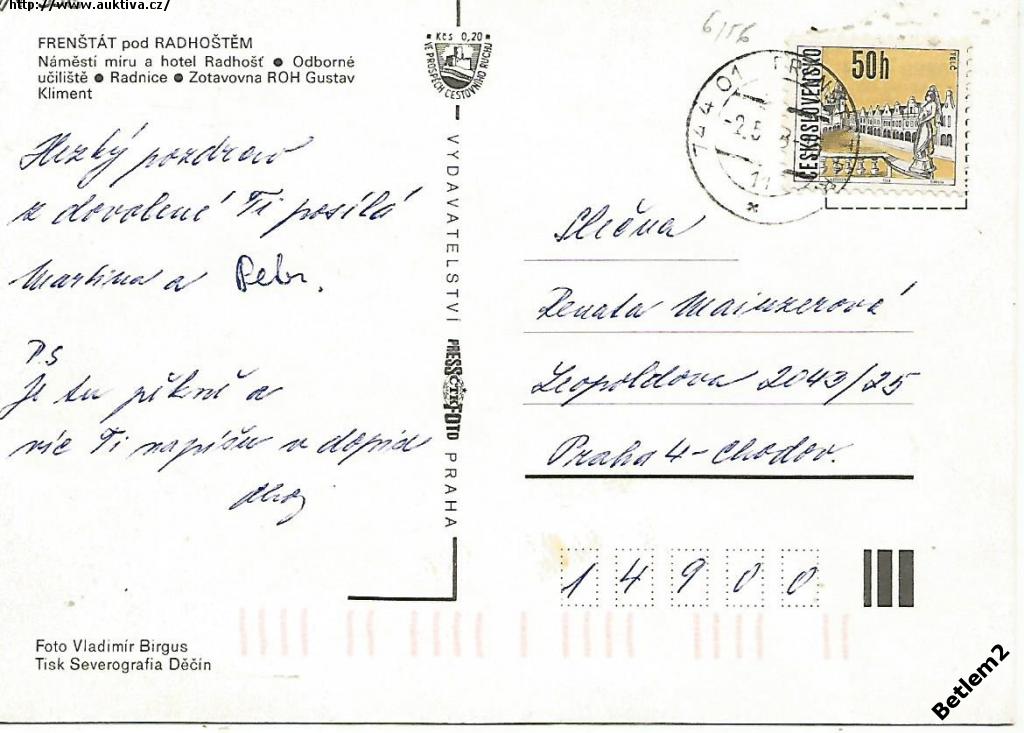 http://www.auktiva.cz/
FRENŠTÁT pod RADHOŠTĚM
Náměstí míru a hotel Radhošť ● Odborné
učiliště ● Radnice ● Zotavovna ROH Gustav
Kliment
Kčs 0,20
VE PROSPĚCH CESTOVNÍHO RUCHU
6/56
74401
-2.5
ČESKOSLOVENSKO
50h
TELČ
Hezký pozdrav
z dovolené Ti posílá
Martina a Petr.
P.S
Je tu pěkně a
víc Ti napíšu v dopid
Ahoj
VYDAVATELSTVÍ PRESSFOTO PRAHA
ČTK
Slečna
Renata Mainzerová
Leopoldova 2043/25
Praha 4-Chodov.
14900
Foto Vladimír Birgus
Tisk Severografia Děčín
Betlem2